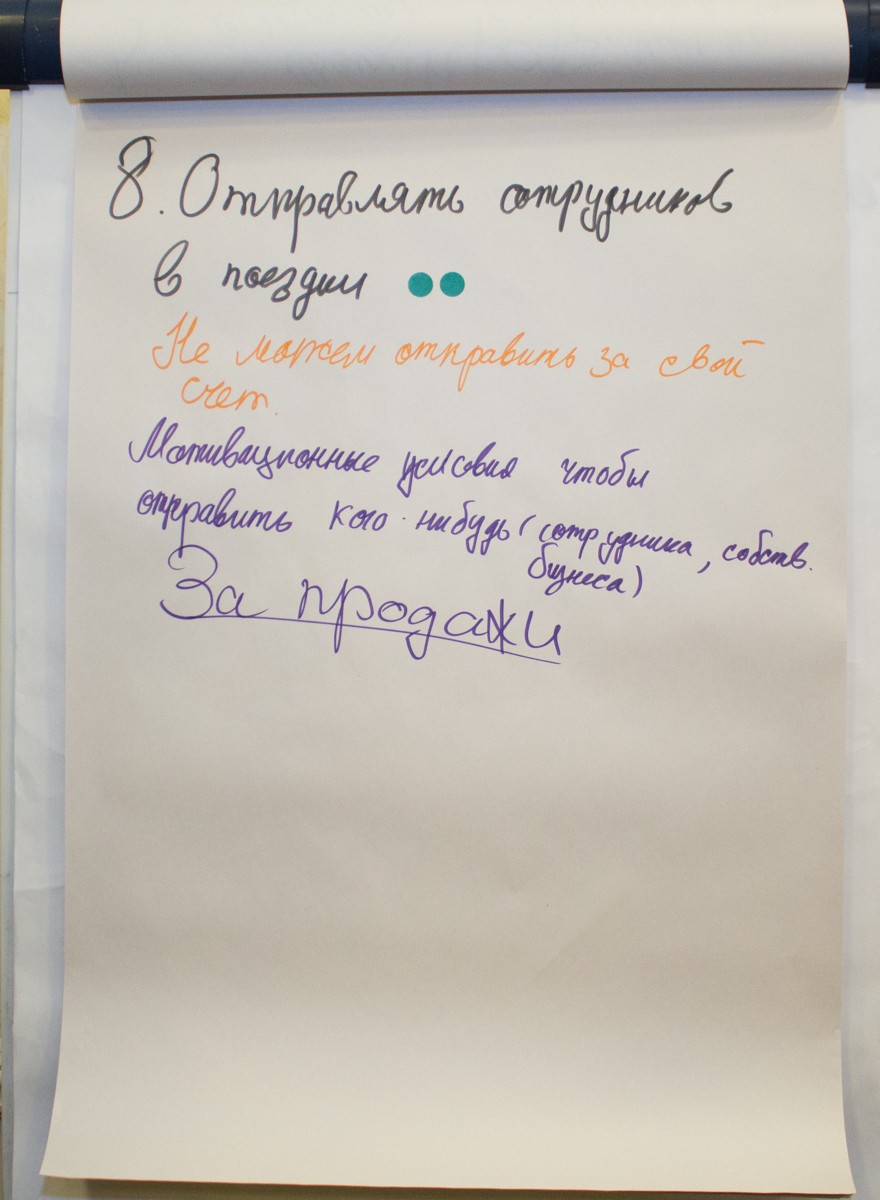 8. Отправлять сотрудников
в поездки
Не можем отправить за свой
счет.
Мотивационные условия чтобы
отправить кого-нибудь (сотрудника, собств.
бизнеса)
За продажи